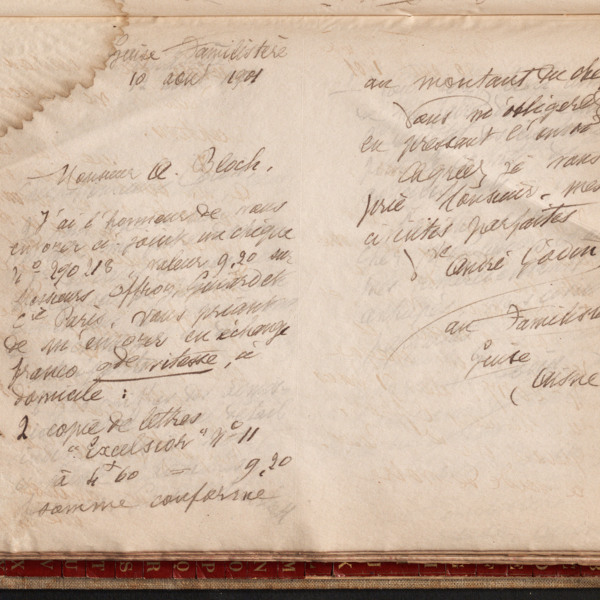 Guise Familistère
10 août 1901
Monsieur A. Bloch,
J'ai l'honneur de vous
envoyer ci-joint un chèque
N° 290.213 valeur 9,20 sur
Messieurs Offroy Guiard et
Cie Paris. Vous priant
de m'envoyer en échange
franco gde vitesse, à
domicile :
2 copie de lettres
"Excelsior" N° 11
à 4f 60 = 9,20
somme conforme
au montant du chè
Vous m'obligerez
en pressant l'envoi
Agréez je vous
prie Monsieur, mes
civilités parfaites
André Godin
au Familistè
Guise
(Aisne
M N O P Q R S T U V X